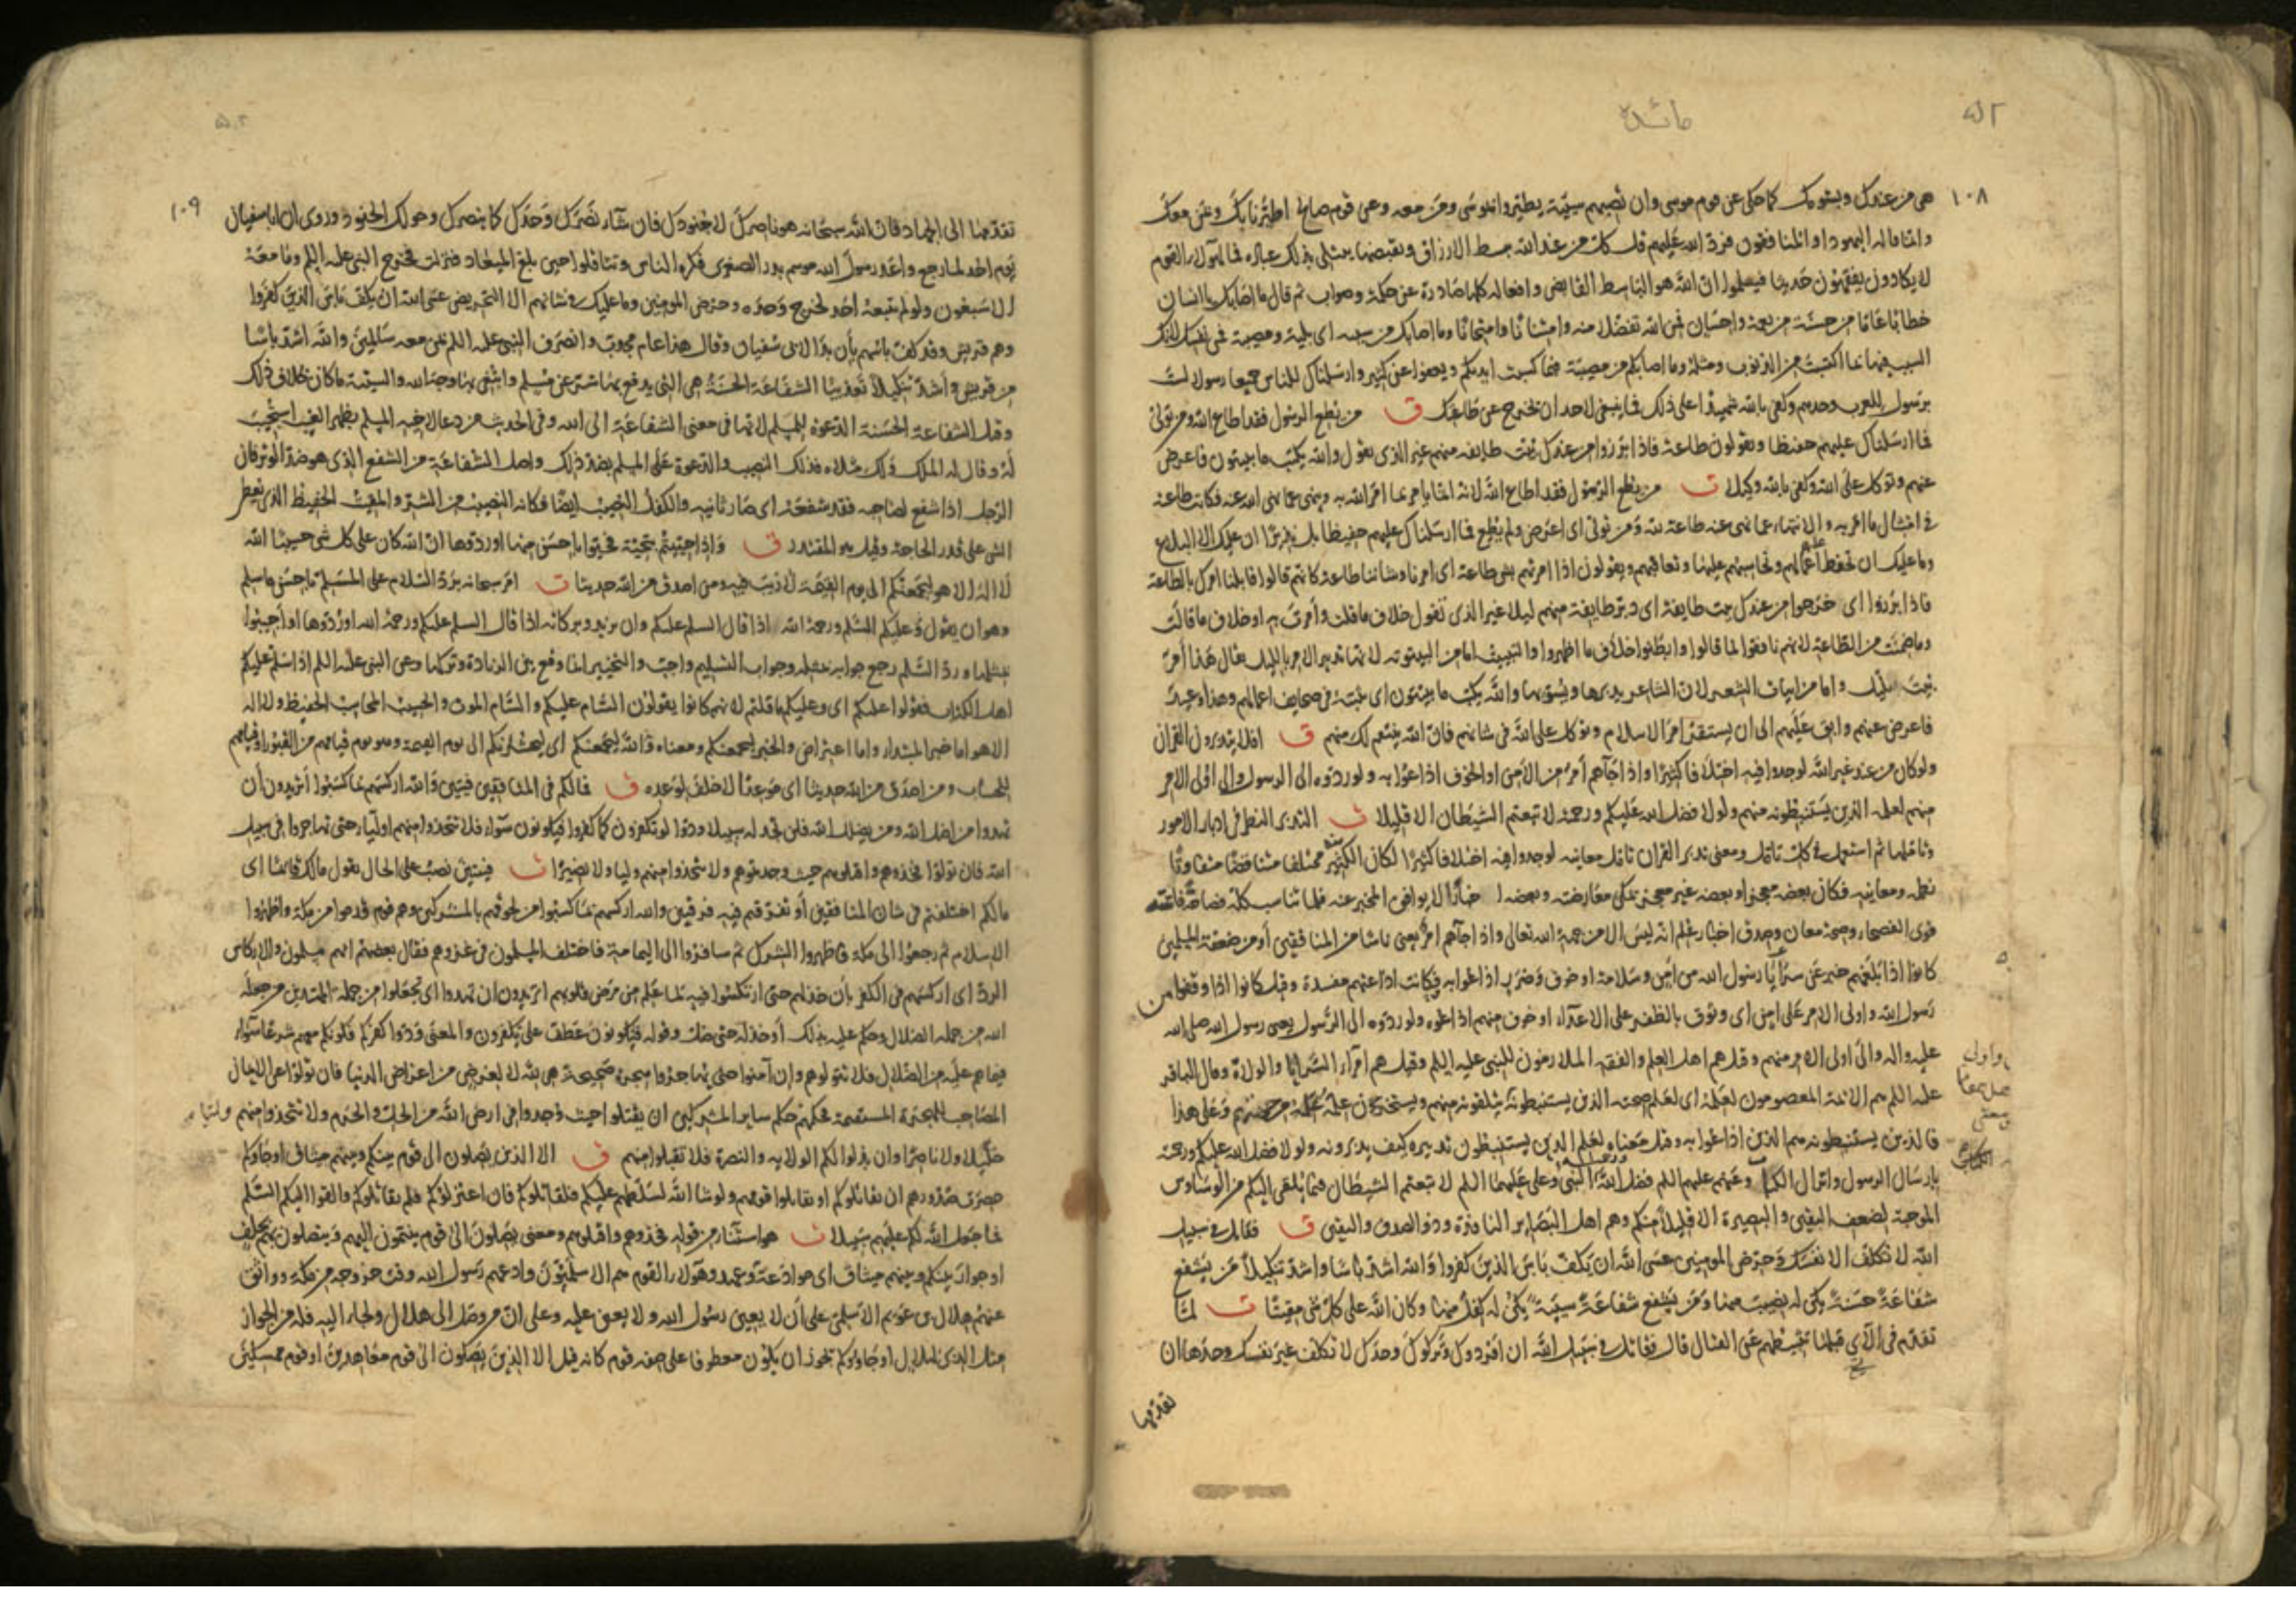 ۵۲
مائده
۱۰۸
هى من عندك وبشومك كما حكى عن قوم موسى وان تصبهم سيئة يطيروا بموسى ومن معه وعن قوم صالح اطيرنا بك وبمن معك
وانما قاله اليهود او المنافقون فرد الله عليهم قل كل من عند الله يبسط الارزاق ويقبضها فمال هؤلاء القوم
لا يكادون يفقهون حديثا فيعلموا ان الله هو الباسط القابض وافعاله كلها صادرة عن حكمة وصواب ثم قال ما اصابك يا انسان
خطابا عاما من حسنة من نعمة واحسان فمن الله تفضلا منه وامتنانا وامتحانا وما اصابك من سيئة اى بلية ومصيبة فمن نفسك لانك
السبب فيها بما اكتسبت من الذنوب ومثله وما اصابكم من مصيبة فبما كسبت ايديكم ويعفوا عن كثير وارسلناك للناس جميعا رسولا لست
برسول للعرب وحدهم وكفى بالله شهيدا على ذلك فما ينبغى لاحد ان يخرج عن طاعتك ق من يطع الرسول فقد اطاع الله ومن تولى
فما ارسلناك عليهم حفيظا ويقولون طاعة فاذا برزوا من عندك بيت طايفة منهم غير الذى تقول والله يكتب ما يبيتون فاعرض
عنهم وتوكل على الله وكفى بالله وكيلا ت من يطع الرسول فقد اطاع الله لانه انما يامر بما امر الله به وينهى عما نهى الله عنه فكانت طاعته
فى امتثال ما امر به والانتهاء عما نهى عنه طاعة لله ومن تولى اى اعرض ولم يطع فما ارسلناك عليهم حفيظا بل نذيرا ان عليك الا البلاغ
وما عليك ان تحفظ عليهم اعمالهم وتحاسبهم عليها وتعاقبهم ويقولون اذا امرتهم بشى طاعة اى امرنا وشاننا طاعة كانهم قالوا قابلنا امرك بالطاعة
فاذا برزوا اى خرجوا من عندك بيت طايفة اى دبر طايفة منهم ليلا غير الذى تقول خلاف ما قلت وأمرت به او خلاف ما قالت
وما ضمنت من الطاعة لانهم نافقوا بما قالوا وابطنوا خلاف ما اظهروا والتبييت اما من البيتوتة لانها تدبير الامر بالليل يقال هذا أمر
بيت بليل واما من ابيات الشعر لان الشاعر يدبرها ويسويها والله يكتب ما يبيتون اى يثبته فى صحايف اعمالهم وهذا وعيد
فاعرض عنهم وابق عليهم الى ان يستقر امر الاسلام وتوكل على الله فى شانهم فان الله ينتقم لك منهم ق افلا يتدبرون القران
ولو كان من عند غير الله لوجدوا فيه اختلافا كثيرا واذا جآءهم أمر من الأمن او الخوف اذاعوا به ولو ردوه الى الرسول والى اولى الامر
منهم لعلمه الذين يستنبطونه منهم ولولا فضل الله عليكم ورحمته لاتبعتم الشيطان الا قليلا ت التدبر النظر فى ادبار الامور
وتاملها ثم استعمل فى كل تامل ومعنى تدبر القران تامل معانيه لوجدوا فيه اختلافا كثيرا لكان الكثير منه مختلفا متناقضا متفاوتا
نظمه ومعانيه فكان بعضه معجزا وبعضه غير معجز تمكن معارضته وبعضه اخبارا لا يوافق المخبر عنه فلما تناسب كله فصاحة فاقت
قوى الفصحاء وصحة معان وصدق اخبار علم انه ليس الا من جهة الله تعالى واذا جآءهم امر يعنى ناسا من المنافقين أو من ضعفة المسلمين
كانوا اذا بلغهم خبر عن سرايا رسول الله من امن وسلامة او خوف وضرب اذاعوا به فكانت اذاعتهم مفسدة وقيل كانوا اذا وقفوا من
رسول الله واولى الامر على امن اى وثوق بالظفر على الاعداء او خوف منهم اذاعوه ولو ردوه الى الرسول يعنى رسول الله صلى الله
عليه واله والى اولى الامر منهم وقيل هم اهل العلم والفقه الملازمون للنبى عليه السلم وقيل هم امراء السرايا والولاة وقال الباقر
عليه السلم هم الائمة المعصومون لعلمه اى لعلم صحته الذين يستنبطونه يتلقونه منهم ويستخرجون علمه من جهتهم وعلى هذا
فالذين يستنبطونه هم الذين اذاعوا به وقيل معناه لعلم الذين يستنبطون تدبيره كيف يدبرونه ولولا فضل الله عليكم ورحمته
بارسال الرسول وانزال الكتاب وعنهم عليهم السلم فضل الله ورحمته النبى وعلى عليهما السلم لاتبعتم الشيطان فيما يلقى اليكم من الوساوس
الموجبة لضعف اليقين والبصيرة الا قليلا منكم وهم اهل البصاير النافذة وذوا الصدق واليقين ق فقاتل فى سبيل
الله لا تكلف الا نفسك وحرض المومنين عسى الله ان يكف باس الذين كفروا والله اشد باسا واشد تنكيلا من يشفع
شفاعة حسنة يكن له نصيب منها ومن يشفع شفاعة سيئة يكن له كفل منها وكان الله على كل شى مقيتا ت لما
تقدم فى الآى قبلها تثبطهم عن القتال قال فقاتل فى سبيل الله ان افردوك وتركوك وحدك لا تكلف غير نفسك وحدها ان
تقدمها
۱۰۹
تقدمها الى الجهاد فان الله سبحانه هو ناصرك لا جنودك فان شآء نصرك وحدك كما ينصرك وحولك الجنود وروى ان ابا سفيان
يوم احد لما رجع واعد رسول الله موسم بدر الصغرى فكره الناس وتثاقلوا حين بلغ الميعاد فنزلت فخرج النبى عليه السلم وما معه
الا سبعون ولو لم يتبعه احد لخرج وحده وحرض المومنين وما عليك فى شانهم الا التحريض عسى الله ان يكف باس الذين كفروا
وهم قريش وقد كف بأسهم بأن بدا لابى سفيان وقال هذا عام مجدب وانصرف النبى عليه السلم بمن معه سالمين والله اشد باسا
من قريش وأشد تنكيلا تعذيبا الشفاعة الحسنة هى التى يدفع بها شر عن مسلم وابتغى بها وجه الله والسيئة ما كان خلاف ذلك
وقيل الشفاعة الحسنة الدعوة للمسلم لانها فى معنى الشفاعة الى الله وفى الحديث من دعا لاخيه المسلم بظهر الغيب استجيب
له وقال له الملك ولك مثلاه فذلك النصيب والدعوة على المسلم بضد ذلك واصل الشفاعة من الشفع الذى هو ضد الوتر فان
الرجل اذا شفع لصاحبه فقد شفعه اى صار ثانيه والكفل النصيب ايضا فكانه النصيب من الشر والمقيت الحفيظ الذى يعطى
الشى على قدر الحاجة وقيل هو المقتدر ق واذا حييتم بتحية فحيوا باحسن منها اوردوها ان الله كان على كل شى حسيبا الله
لا اله الا هو ليجمعنكم الى يوم القيمة لا ريب فيه ومن اصدق من الله حديثا ت امر سبحانه برد السلام على المسلم باحسن ما سلم
وهو ان يقول وعليكم السلم ورحمة الله اذا قال السلم عليكم وان يزيد وبركاته اذا قال السلم عليكم ورحمة الله اوردوها او اجيبوا
بمثلها ورد السلم رجع جوابه بمثله وجواب التسليم واجب والتخيير انما وقع بين الزيادة وتركها وعن النبى عليه السلم اذا سلم عليكم
اهل الكتاب فقولوا عليكم اى وعليكم ما قلتم لانهم كانوا يقولون السام عليكم والسام الموت والحسيب المحاسب الحفيظ ولا اله
الا هو اما خبر المبتدا واما اعتراض والخبر ليجمعنكم ومعناه والله ليجمعنكم اى ليحشرنكم الى يوم القيمة وهو يوم قيامهم من القبور او قيامهم
للحساب ومن اصدق من الله حديثا اى موعدا لا خلف لوعده ق فما لكم فى المنافقين فئتين والله اركسهم بما كسبوا أتريدون أن
تهدوا من اضل الله ومن يضلل الله فلن تجد له سبيلا ودوا لو تكفرون كما كفروا فتكونون سواء فلا تتخذوا منهم اولياء حتى يهاجروا فى سبيل
الله فان تولوا فخذوهم واقتلوهم حيث وجدتموهم ولا تتخذوا منهم وليا ولا نصيرا ت فئتين نصب على الحال تقول مالك قائما اى
مالكم اختلفتم فى شان المنافقين أو تفرقتم فيه فرقتين والله اركسهم بما كسبوا من لحوقهم بالمشركين وهم قوم قدموا من مكة واظهروا
الاسلام ثم رجعوا الى مكة فاظهروا الشرك ثم سافروا الى اليمامة فاختلف المسلمون فى غزوهم فقال بعضهم انهم مسلمون والاركاس
الرد اى اركسهم فى الكفر بأن خذلهم حتى ارتكسوا فيه لما علم من مرض قلوبهم اتريدون ان تهدوا اى تجعلوا من جملة المهتدين من جعله
الله من جملة الضلال وحكم عليه بذلك أو خذله حتى ضل وقوله فتكونون عطف على تكفرون والمعنى ودوا كفركم فكونكم معهم شرعا سواء
فيما هم عليه من الضلال فلا تتولوهم وان آمنوا حتى يهاجروا هجرة صحيحة هى لله لا لغرض من اعراض الدنيا فان تولوا عن الايمان
المصاحب للهجرة المستقيمة فحكمهم حكم ساير المشركين ان يقتلوا حيث وجدوا فى ارض الله من الحل والحرم ولا تتخذوا منهم وليا
خليلا ولا ناصرا وان بذلوا لكم الولاية والنصرة فلا تقبلوا منهم ق الا الذين يصلون الى قوم بينكم وبينهم ميثاق اوجاؤكم
حصرت صدورهم ان يقاتلوكم او يقاتلوا قومهم ولو شا الله لسلطهم عليكم فلقاتلوكم فان اعتزلوكم فلم يقاتلوكم والقوا اليكم السلم
فما جعل الله لكم عليهم سبيلا ت هو استثناء من قوله فخذوهم واقتلوهم ومعنى يصلون الى قوم ينتمون اليهم ويتصلون بهم بحلف
او جوار بينكم وبينهم ميثاق اى موادعة وعهد وهؤلاء القوم هم الاسلميون وادعهم رسول الله وقت خروجه من مكة وواثق
عنهم هلال بن عويمر الاسلمى على أن لا يعين رسول الله ولا يعين عليه وعلى ان من وصل الى هلال ولجاء اليه فله من الجوار
مثل الذى لهلال اوجاؤوكم يجوز ان يكون معطوفا على صفة قوم كانه قيل الا الذين يصلون الى قوم معاهدين او قوم ممسكين